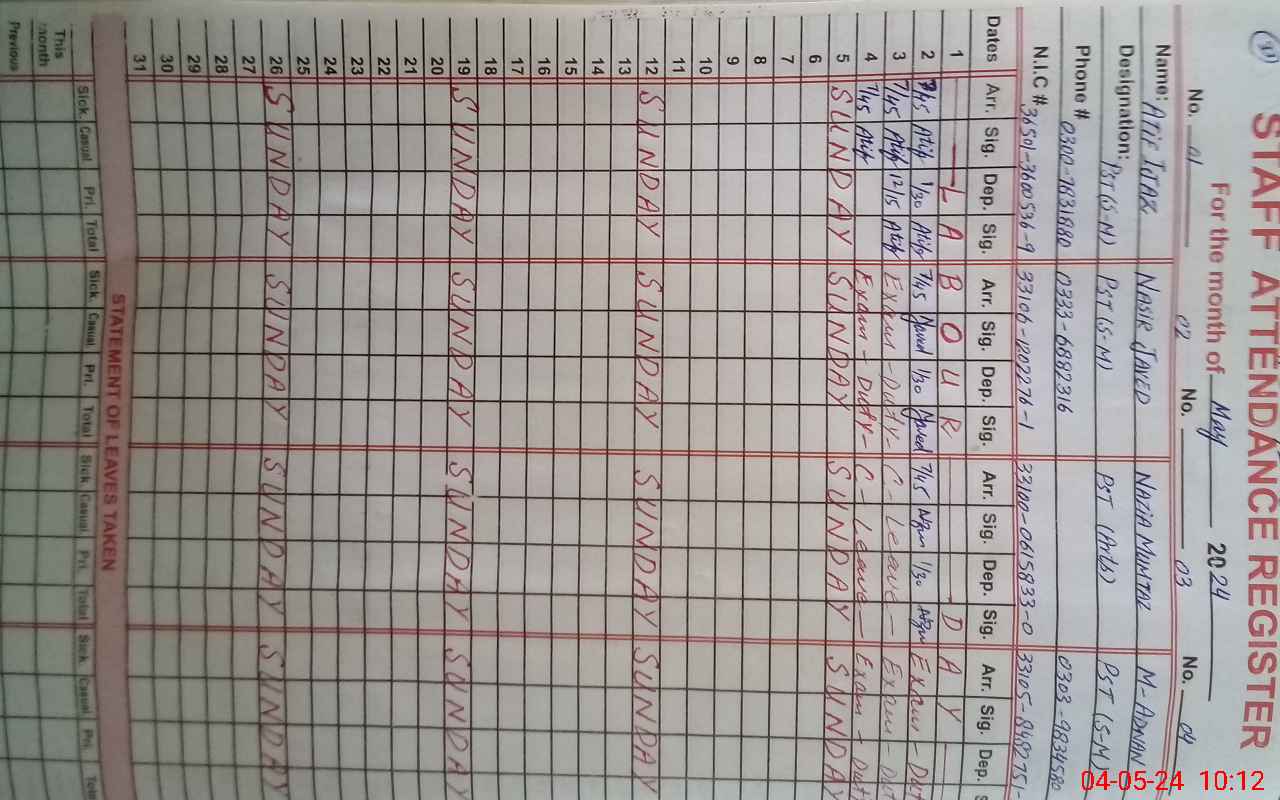 31
STAFF ATTENDANCE REGISTER
For the month of May 2024
No. 01 02 No. 03 No. 04
Name: Atif Ijaz NASIR JAVED NAZIA MUMTAZ M-ADNAN
Designation: PST (S-M) PST (S-M) PST (Arts) PST (S-M)
Phone # 0300-7831880 0333-6882316 0303-9834580
N.I.C # 36501-3600536-9 33106-1202276-1 33100-0615833-0 33105-8492751-
Dates Arr. Sig. Dep. Sig. Arr. Sig. Dep. Sig. Arr. Sig. Dep. Sig. Arr. Sig. Dep. S
1 LABOUR DAY
2 7/45 Atif 1/30 Atif 7/45 Javed 1/30 Javed 7/45 1/30 Exam - Dut
3 7/45 Atif 12/15 Atif Exam - Duty - C - Leave - Exam - Dut
4 7/45 Atif Exam - Duty - C - Leave - Exam - Dut
5 SUNDAY SUNDAY SUNDAY SUNDAY
6
7
8
9
10
11
12 SUNDAY SUNDAY SUNDAY SUNDAY
13
14
15
16
17
18
19 SUNDAY SUNDAY SUNDAY SUNDAY
20
21
22
23
24
25
26 SUNDAY SUNDAY SUNDAY SUNDAY
27
28
29
30
31
STATEMENT OF LEAVES TAKEN
Sick. Casual Pri. Total Sick. Casual Pri. Total Sick. Casual Pri. Total Sick Casual Pri. Tota
This month
Previous
04-05-24 10:12